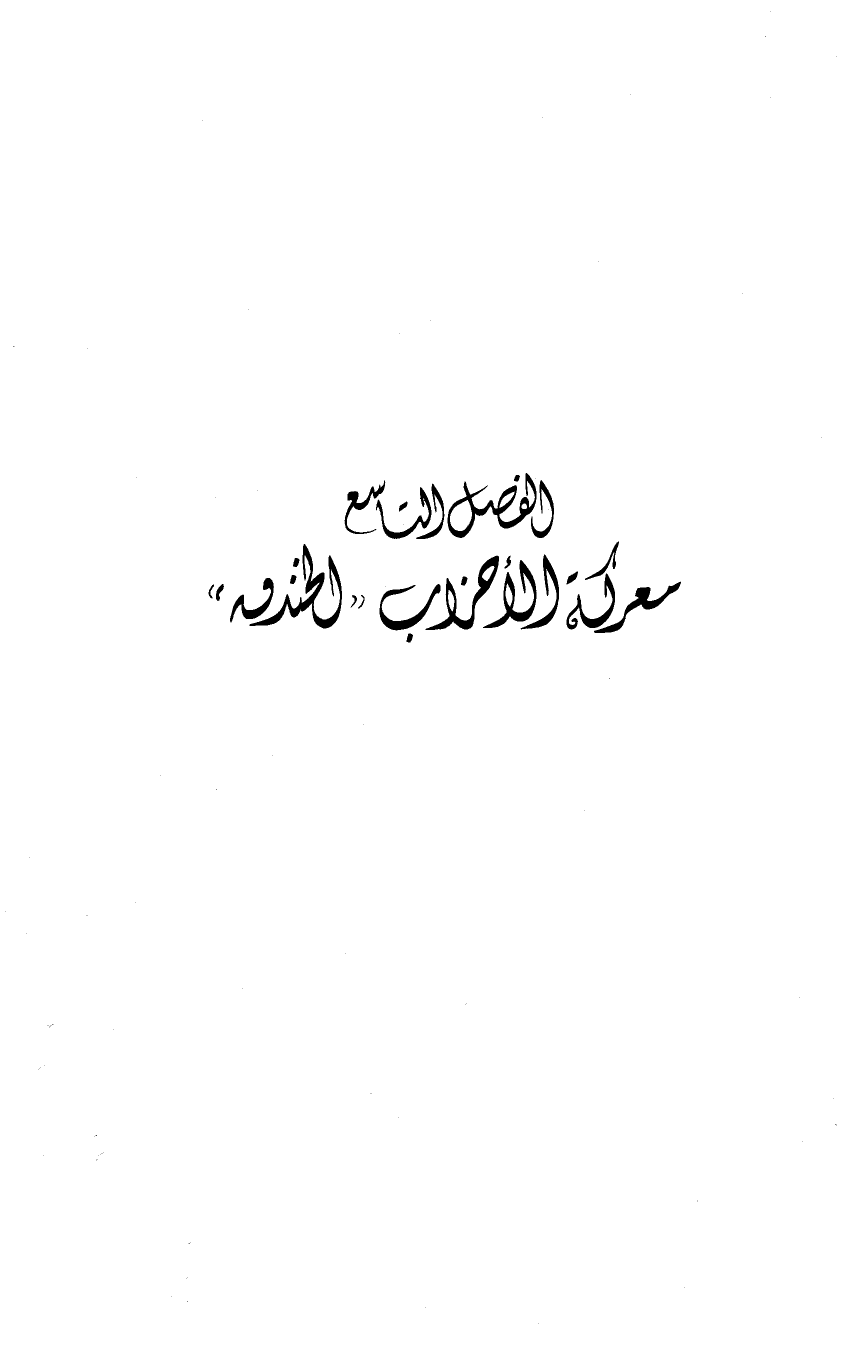 الفصل التاسع
معركة الأحزاب «الخندق»